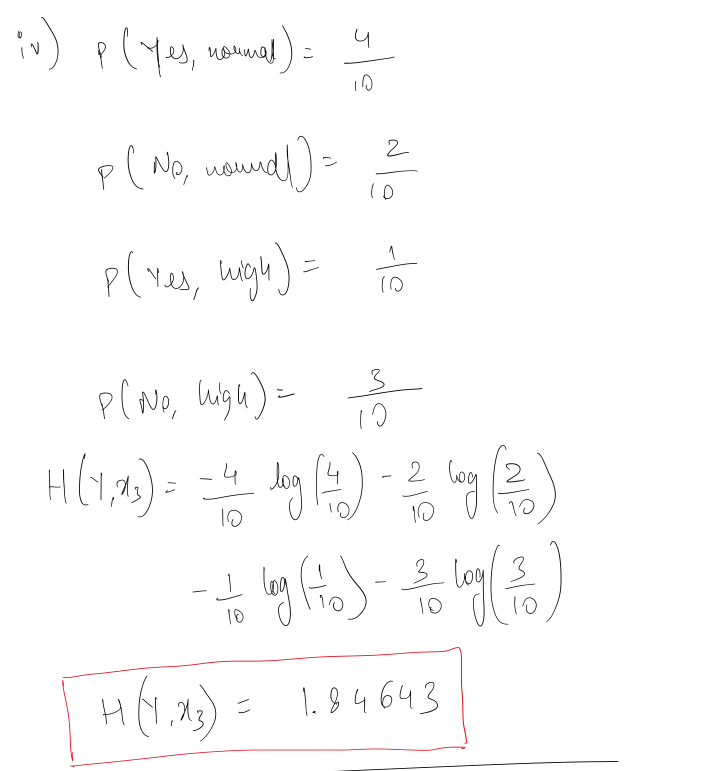 iv) P(Yes, normal) = 4/10
P(No, normal) = 2/10
P(Yes, high) = 1/10
P(No, high) = 3/10
H(Y,x₃) = -4/10 log(4/10) - 2/10 log(2/10)
- 1/10 log(1/10) - 3/10 log(3/10)
H(Y,x₃) = 1.84643